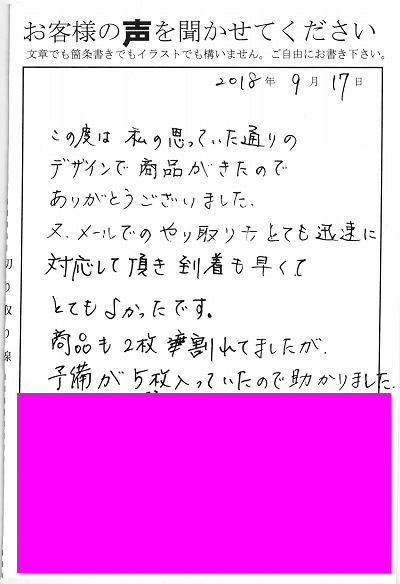 お客様の声を聞かせてください
文章でも箇条書きでもイラストでも構いません。ご自由にお書き下さい。
2018年 9月 17日
この度は 私の思っていた通りの
デザインで 商品がきたので
ありがとうございました.
又、メールでのやり取りも とても 迅速に
対応して 頂き 到着も 早くて
とても よかったです。
商品も 2枚 割れてましたが、
予備が 5枚入っていたので助かりました.
切り取り線